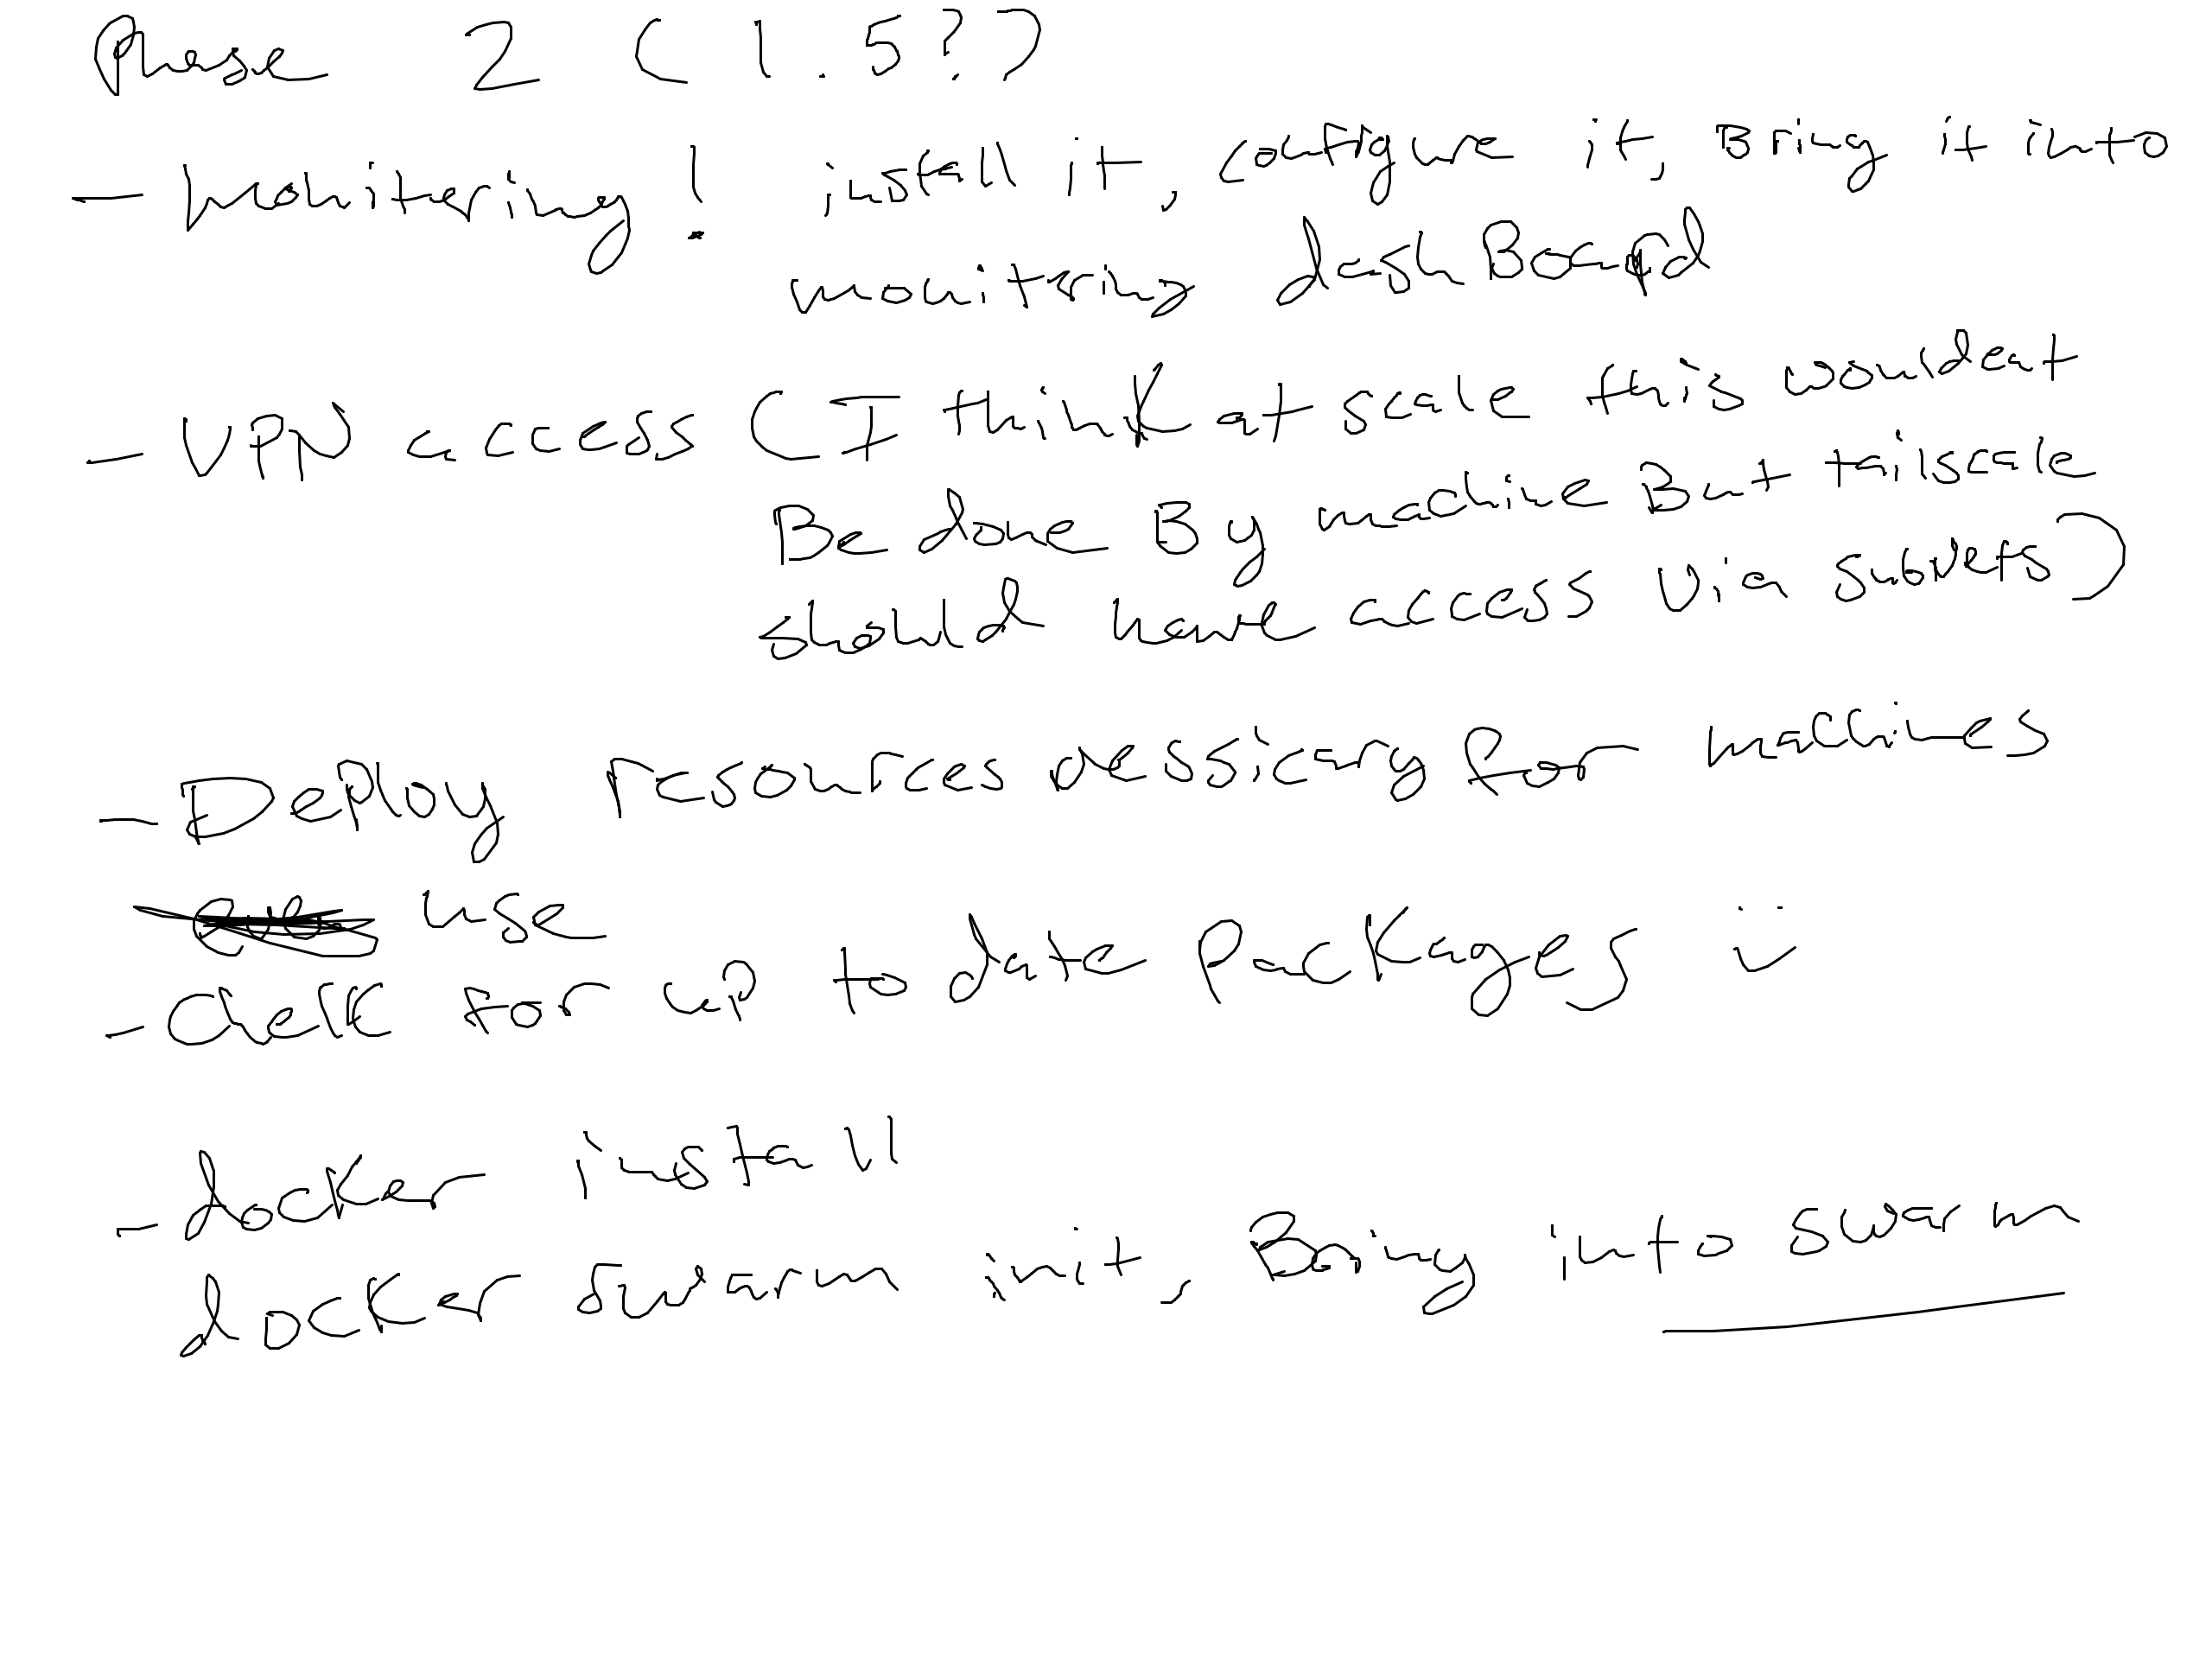 Phase 2 (1.5?)
- Monitering! install it, configure it, Bring it into
monitring dashBoard
- VPN access (I think at scale this wouldent
Be done By machine But tailscale
should have access via subnets)
- Deploy resources nessicary for machines
use
- check for up to date Packages :)
- docker install
docker swarm init, Bring into swarm